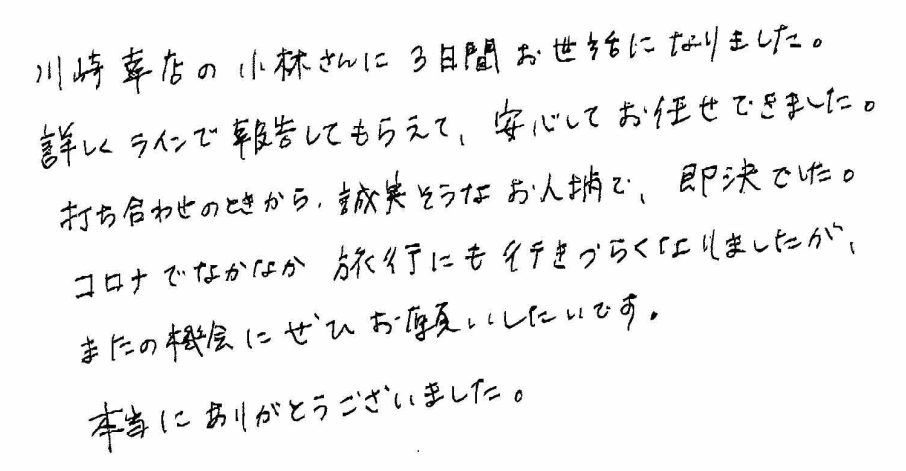 川崎幸店の小林さんに3日間お世話になりました。
詳しくラインで報告してもらえて、安心してお任せできました。
打ち合わせのときから、誠実そうなお人柄で、即決でした。
コロナでなかなか旅行にも行きづらくなりましたが、
またの機会にぜひお願いしたいです。
本当にありがとうございました。